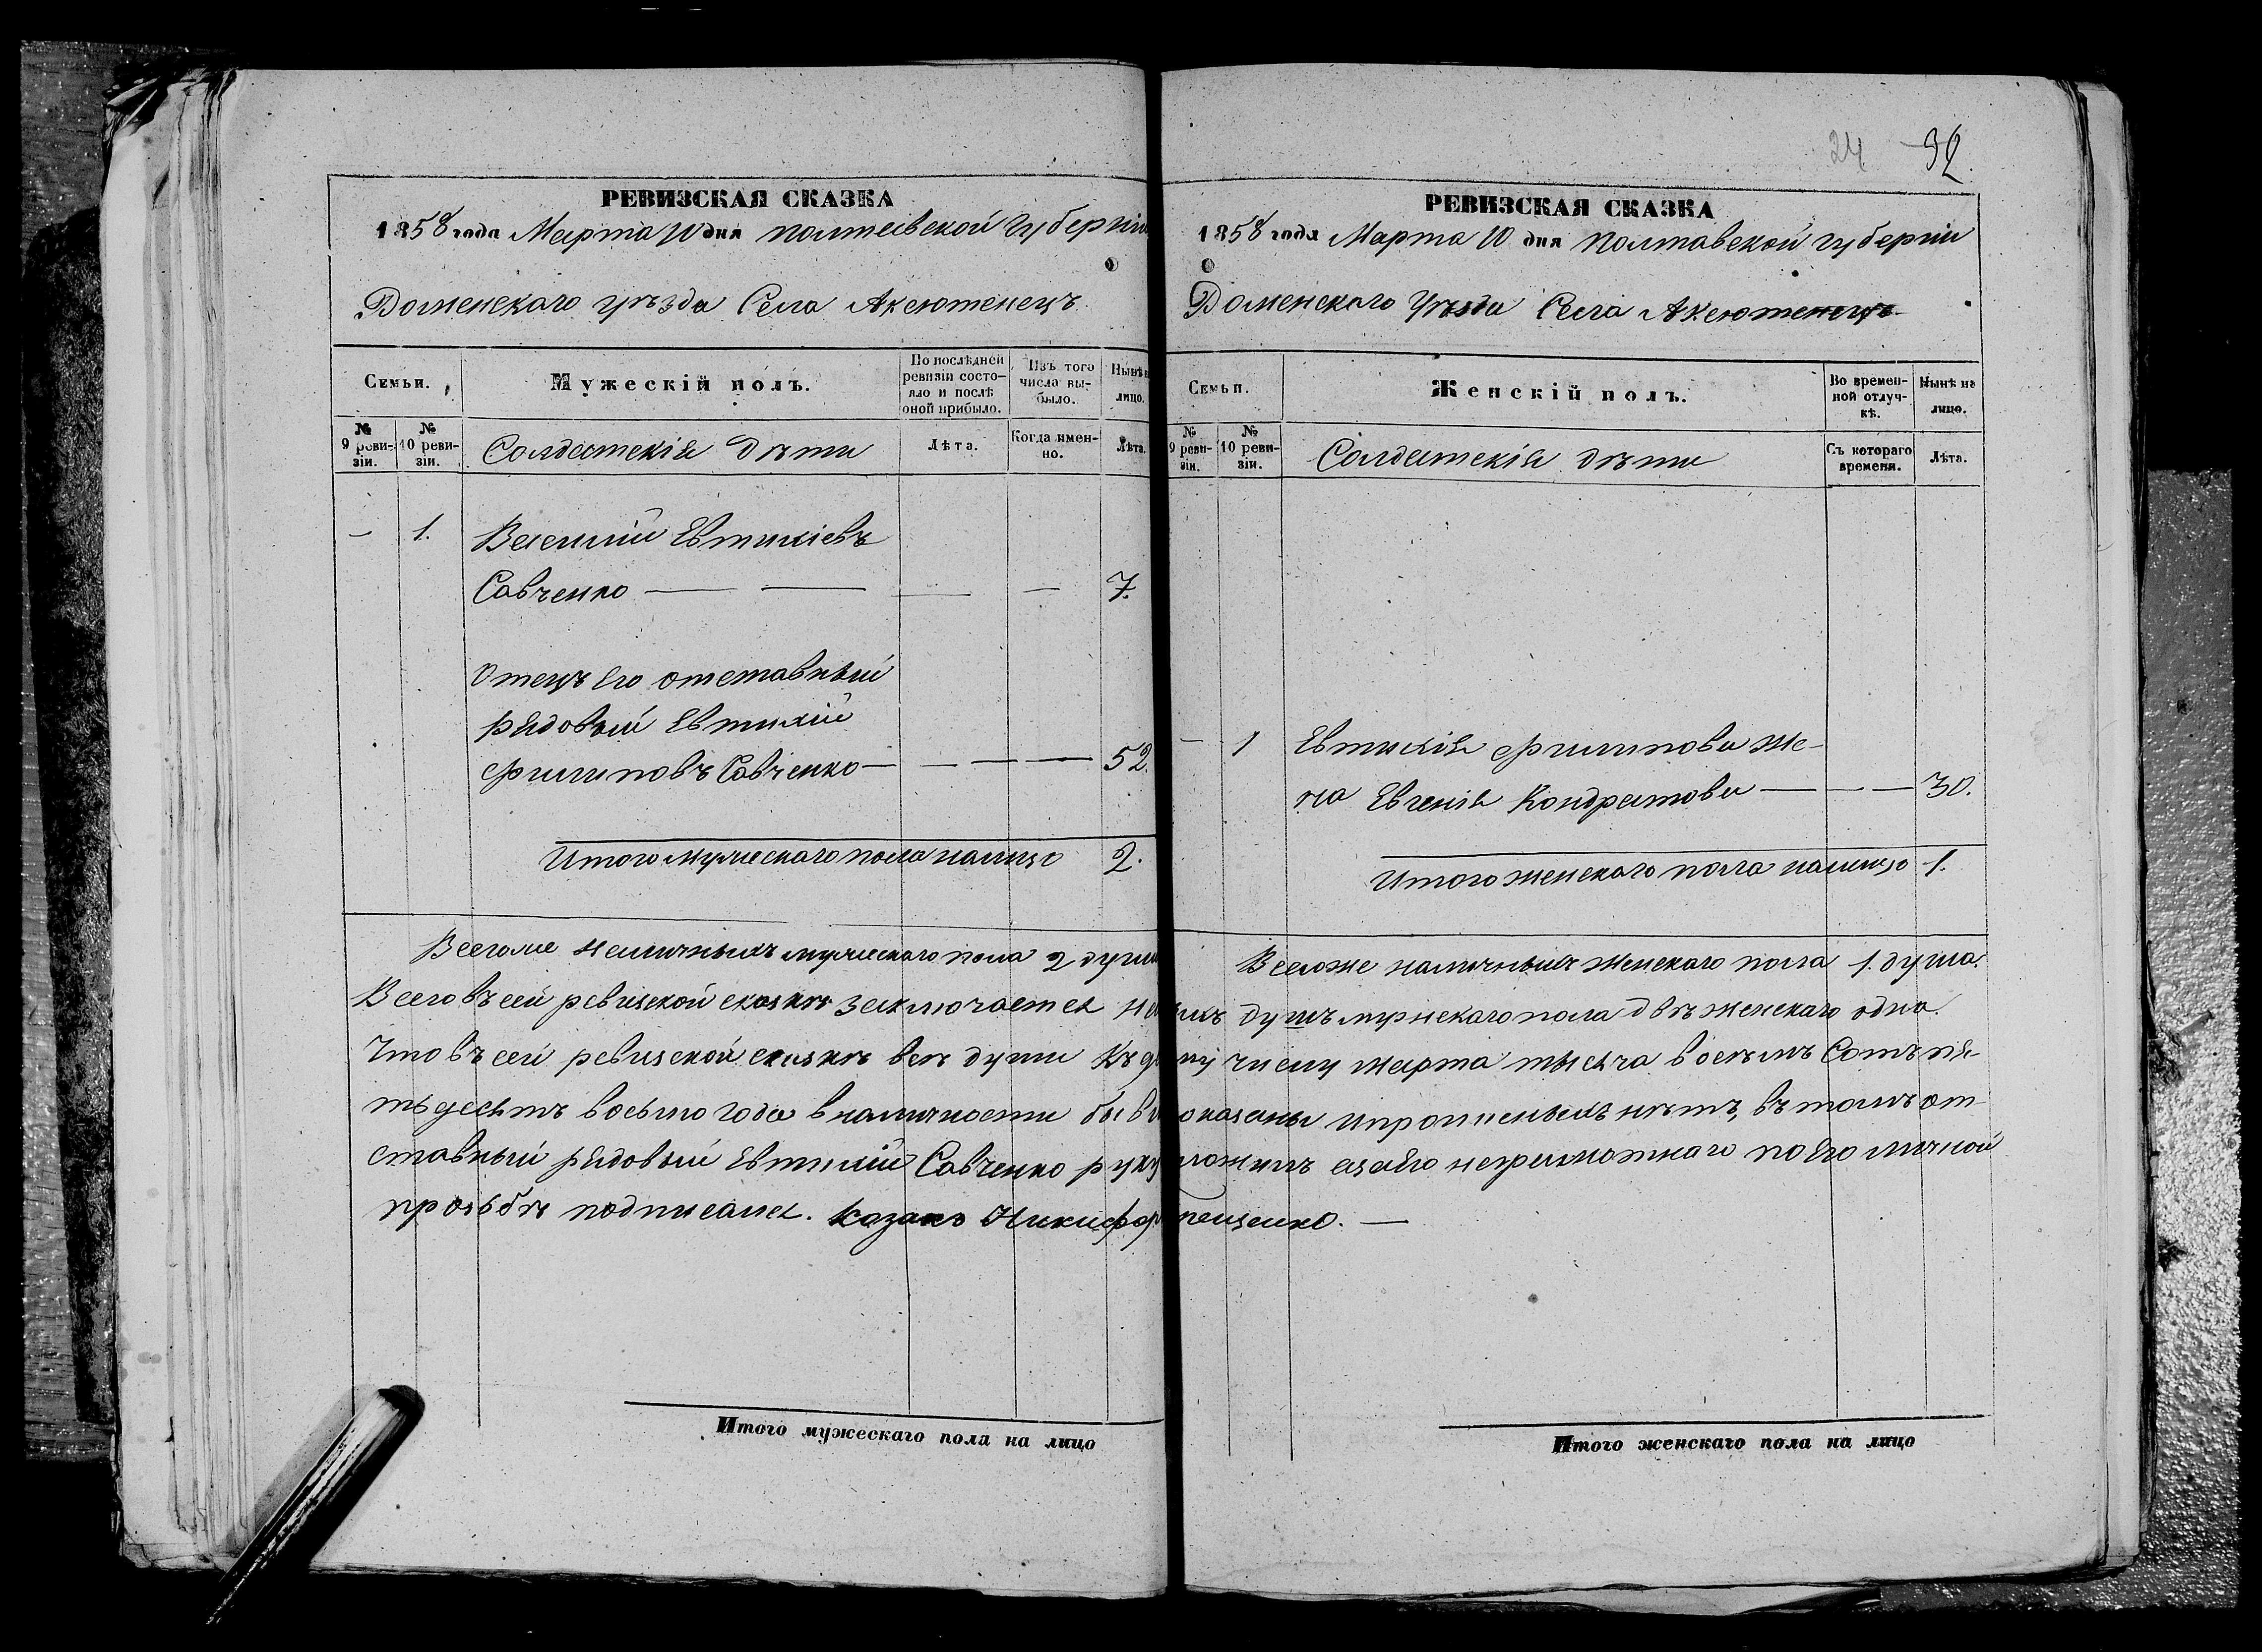 24 92.
РЕВИЗСКАЯ СКАЗКА
1858 года Марта 10 дня Полтавской губерніи
Роменскаго уѣзда Села Аксютенецъ
Семьи.
Мужескій полъ.
По послѣдней ревизіи состояло и послѣ оной прибыло.
Изъ того числа выбыло.
Нынѣ на лицо.
№ 9 ревизіи.
№ 10 ревизіи.
Солдатскія дѣти
Лѣта.
Когда именно.
Лѣта.
— 1. Василій Евтихіевъ
Савченко — — — — 7.
Отецъ его отставный
рядовый Евтихій
Филиповъ Савченко — — — — 52.
Итого мужескаго пола налицо 2.
РЕВИЗСКАЯ СКАЗКА
1858 года Марта 10 дня Полтавской губерніи
Роменскаго Уѣзда Села Аксютенецъ
Семьи.
Женскій полъ.
Во временной отлучкѣ.
Нынѣ на лицо.
№ 9 ревизіи.
№ 10 ревизіи.
Солдатскія дѣти
Съ котораго времени.
Лѣта.
— 1 Евтихія Филипова же-
на Евгенія Кондратова — — — 30.
Итого женскаго пола налицо 1.
Всегоже наличныхъ мужескаго пола 2 души
Всегоже наличныхъ женскаго пола 1. душа.
Всего въ сей ревизской сказкѣ заключается душъ мужескаго пола двѣ женскаго одна.
Что въ сей ревизской сказкѣ всѣ души къ числу марта тысяча восемъ Сотъ пя-
тьдесятъ восьмого года в наличности показаны и прописныхъ нѣтъ, въ томъ от-
ставный рядовый Евтихій Савченко а за его неграмотнаго по Его личной
прозьбѣ подписался. казакъ Никифоръ
Итого мужескаго пола на лицо
Итого женскаго пола на лицо